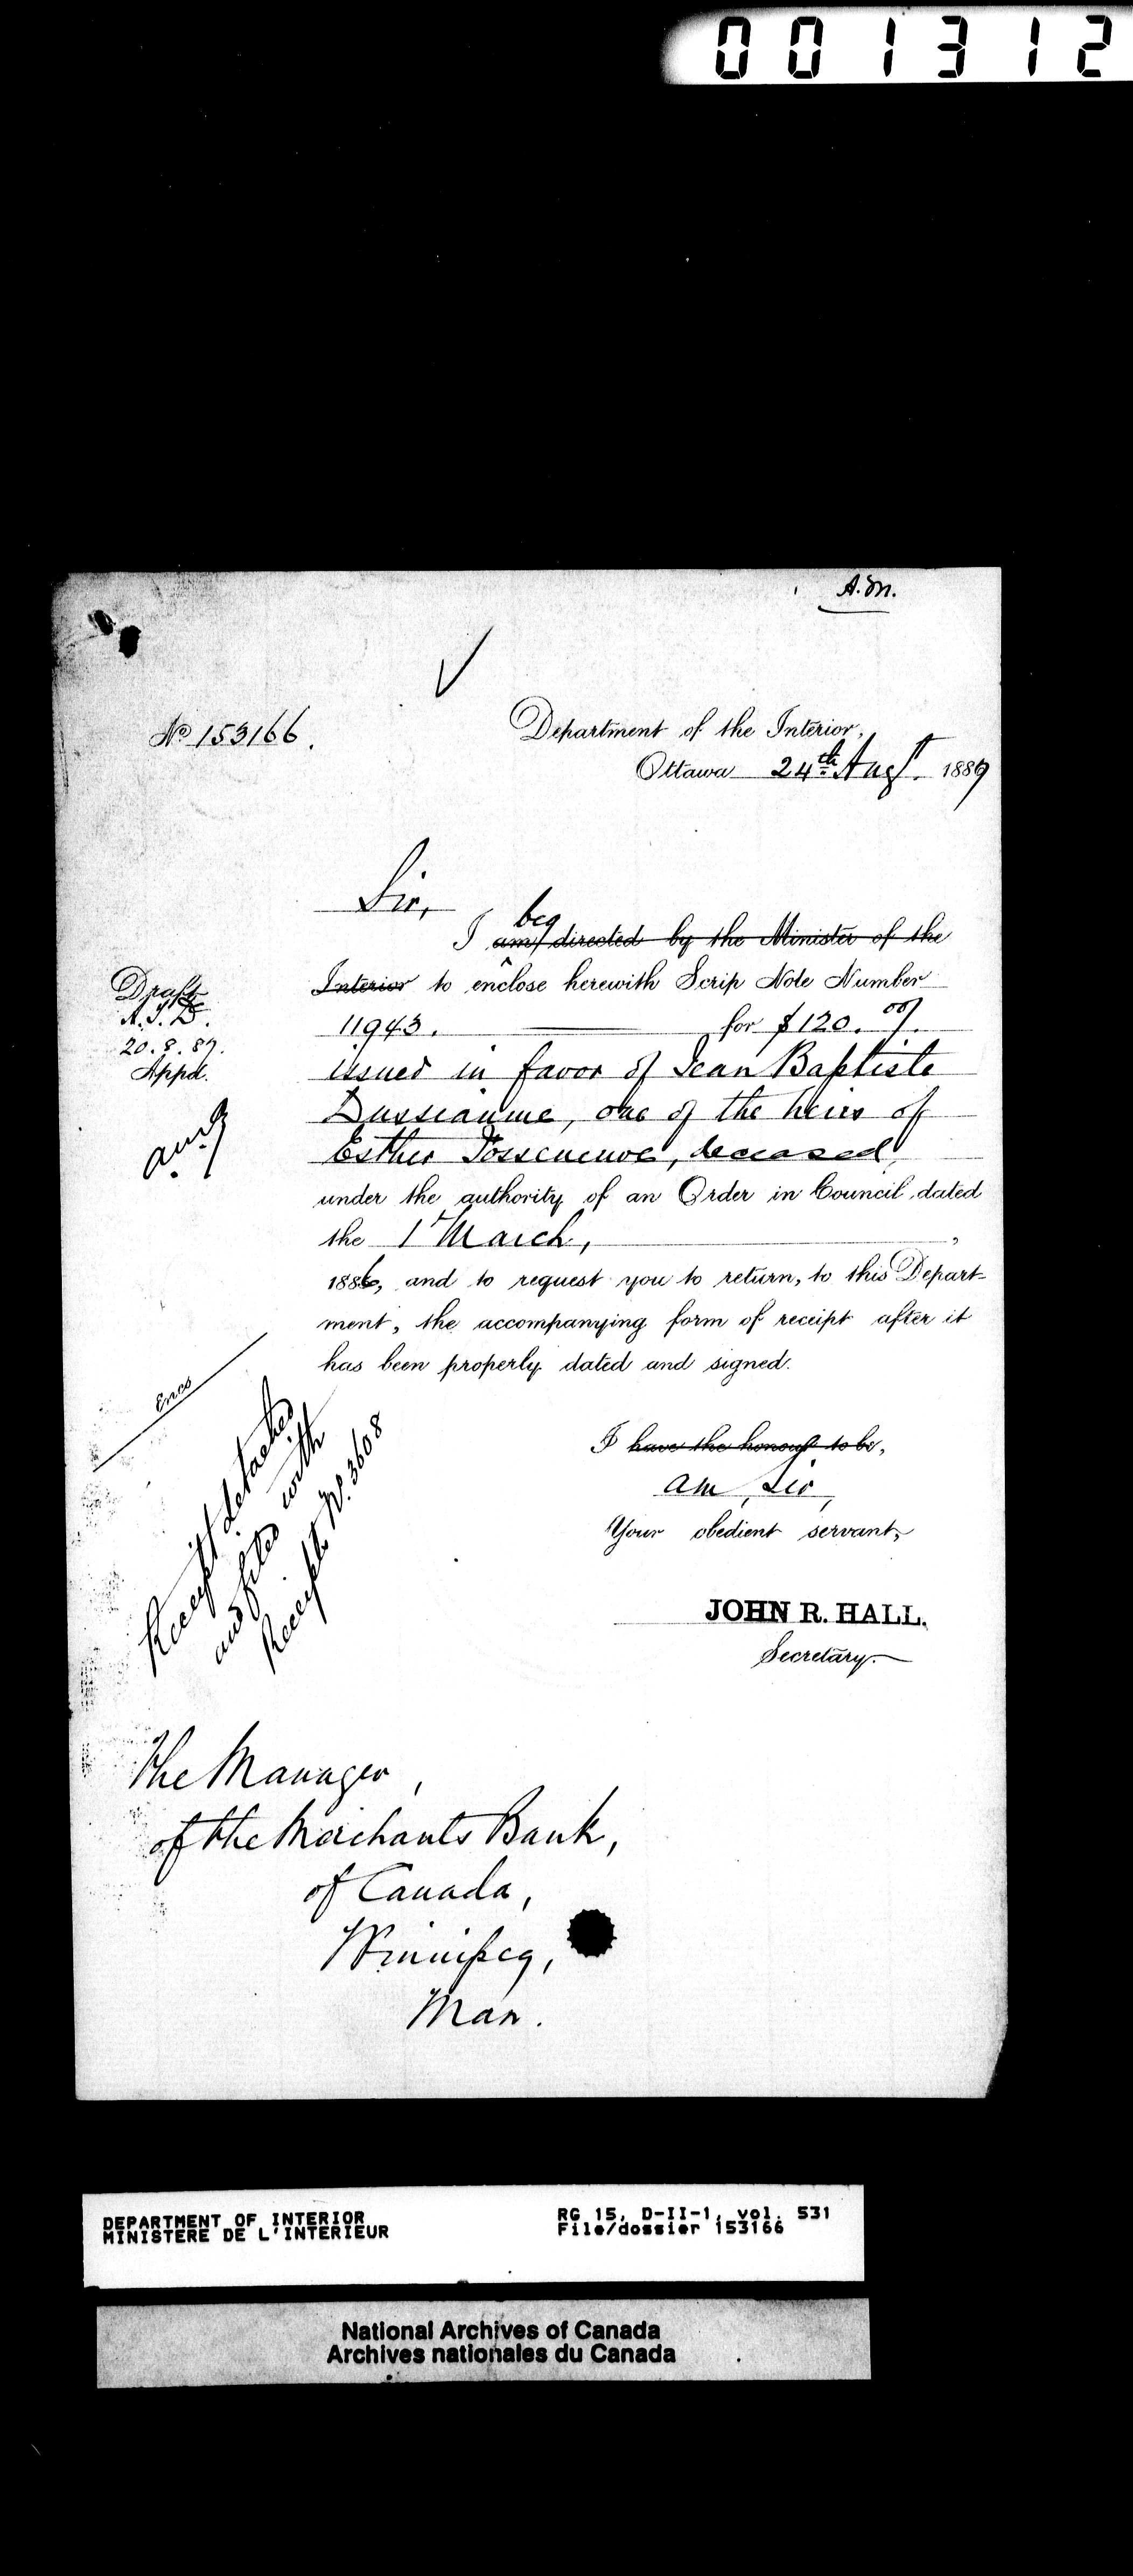 001312
A.M.
No 153166.
Department of the Interior,
Ottawa 24th Augt. 1889
Sir,
beg
I am directed by the Minister of the
Interior to enclose herewith Scrip Note Number
11943. for $120.00/.
issued in favor of Jean Baptiste
Dussiaume, one of the heirs of
Esther deceased,
under the authority of an Order in Council, dated
the 1st March, ,
1886, and to request you to return, to this Depart-
ment, the accompanying form of receipt after it
has been properly dated and signed.
Draft
20.8.89.
Appd.
Encs
Receipt detached
and filed with
Receipt No. 3608
I have the honour to be,
am, Sir,
Your obedient servant,
JOHN R. HALL.
Secretary.
The Manager,
of the Merchants Bank,
of Canada,
Winnipeg,
Man.
DEPARTMENT OF INTERIOR RG 15, D-II-1, vol. 531
MINISTERE DE L'INTERIEUR File/dossier 153166
National Archives of Canada
Archives nationales du Canada